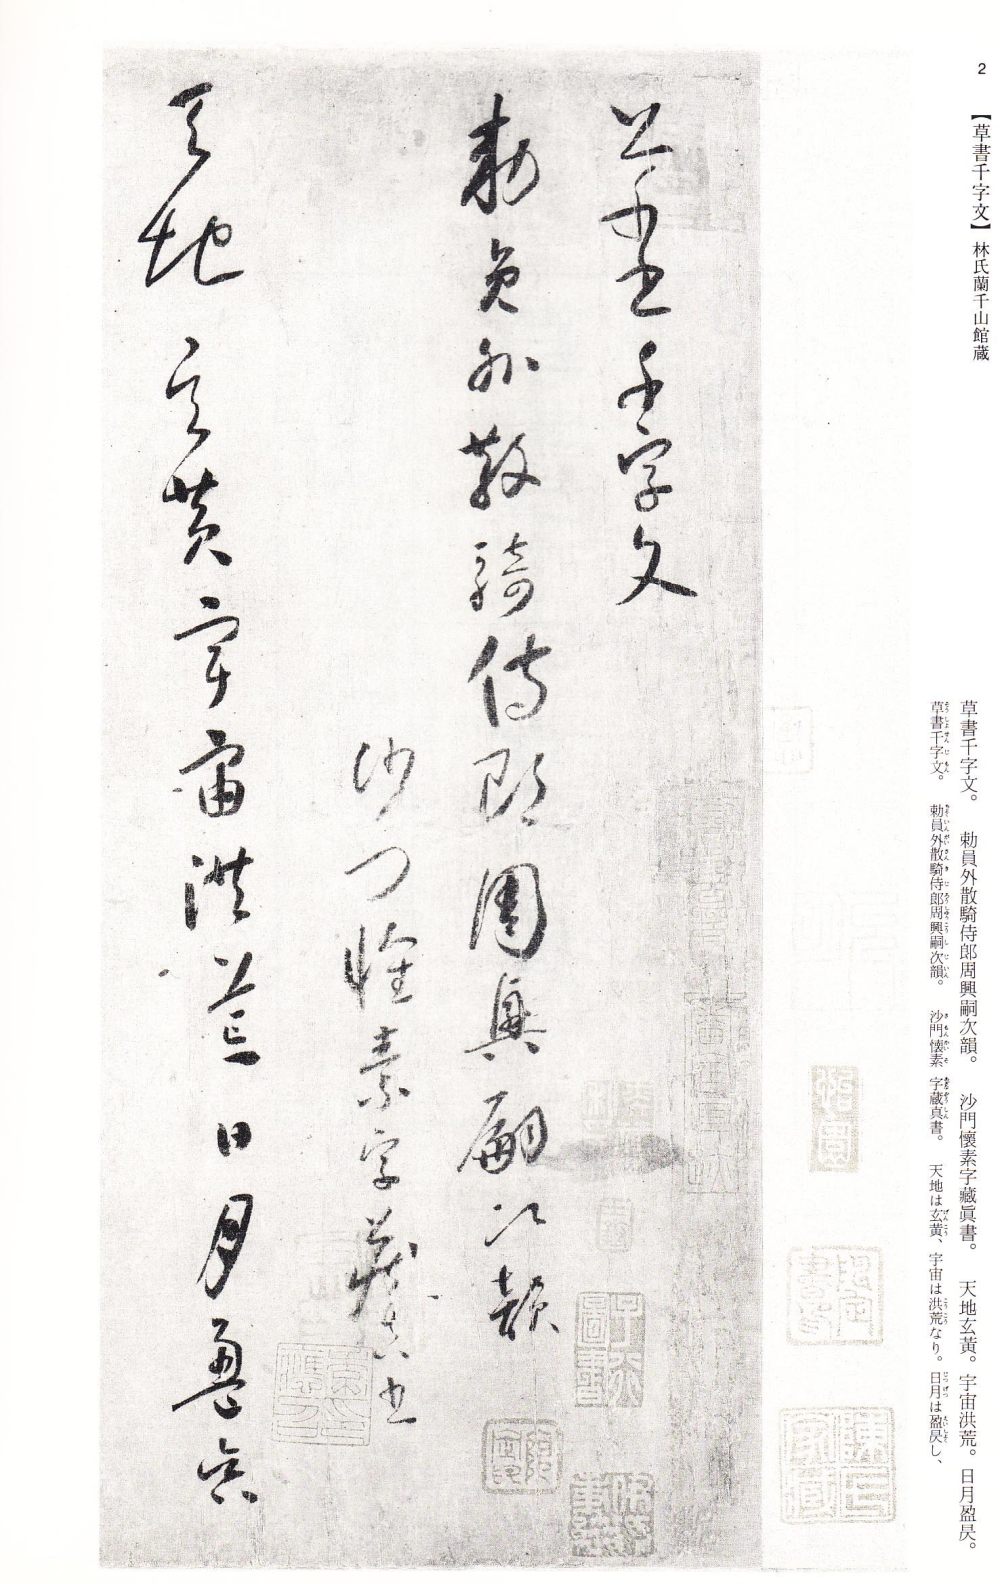 2
【草書千字文】林氏蘭千山館蔵
草書千字文。 勅員外散騎侍郎周興嗣次韻。 沙門懷素字藏眞書。 天地玄黃。宇宙洪荒。日月盈昃。
草書千字文。 勅員外散騎侍郎周興嗣次韻。 沙門懐素 字蔵真書。 天地は玄黄、宇宙は洪荒なり。日月は盈昃し、
草書千字文
勅員外散騎侍郎周興嗣次韻
沙門懷素字藏眞書
天地玄黃宇宙洪荒日月盈昃